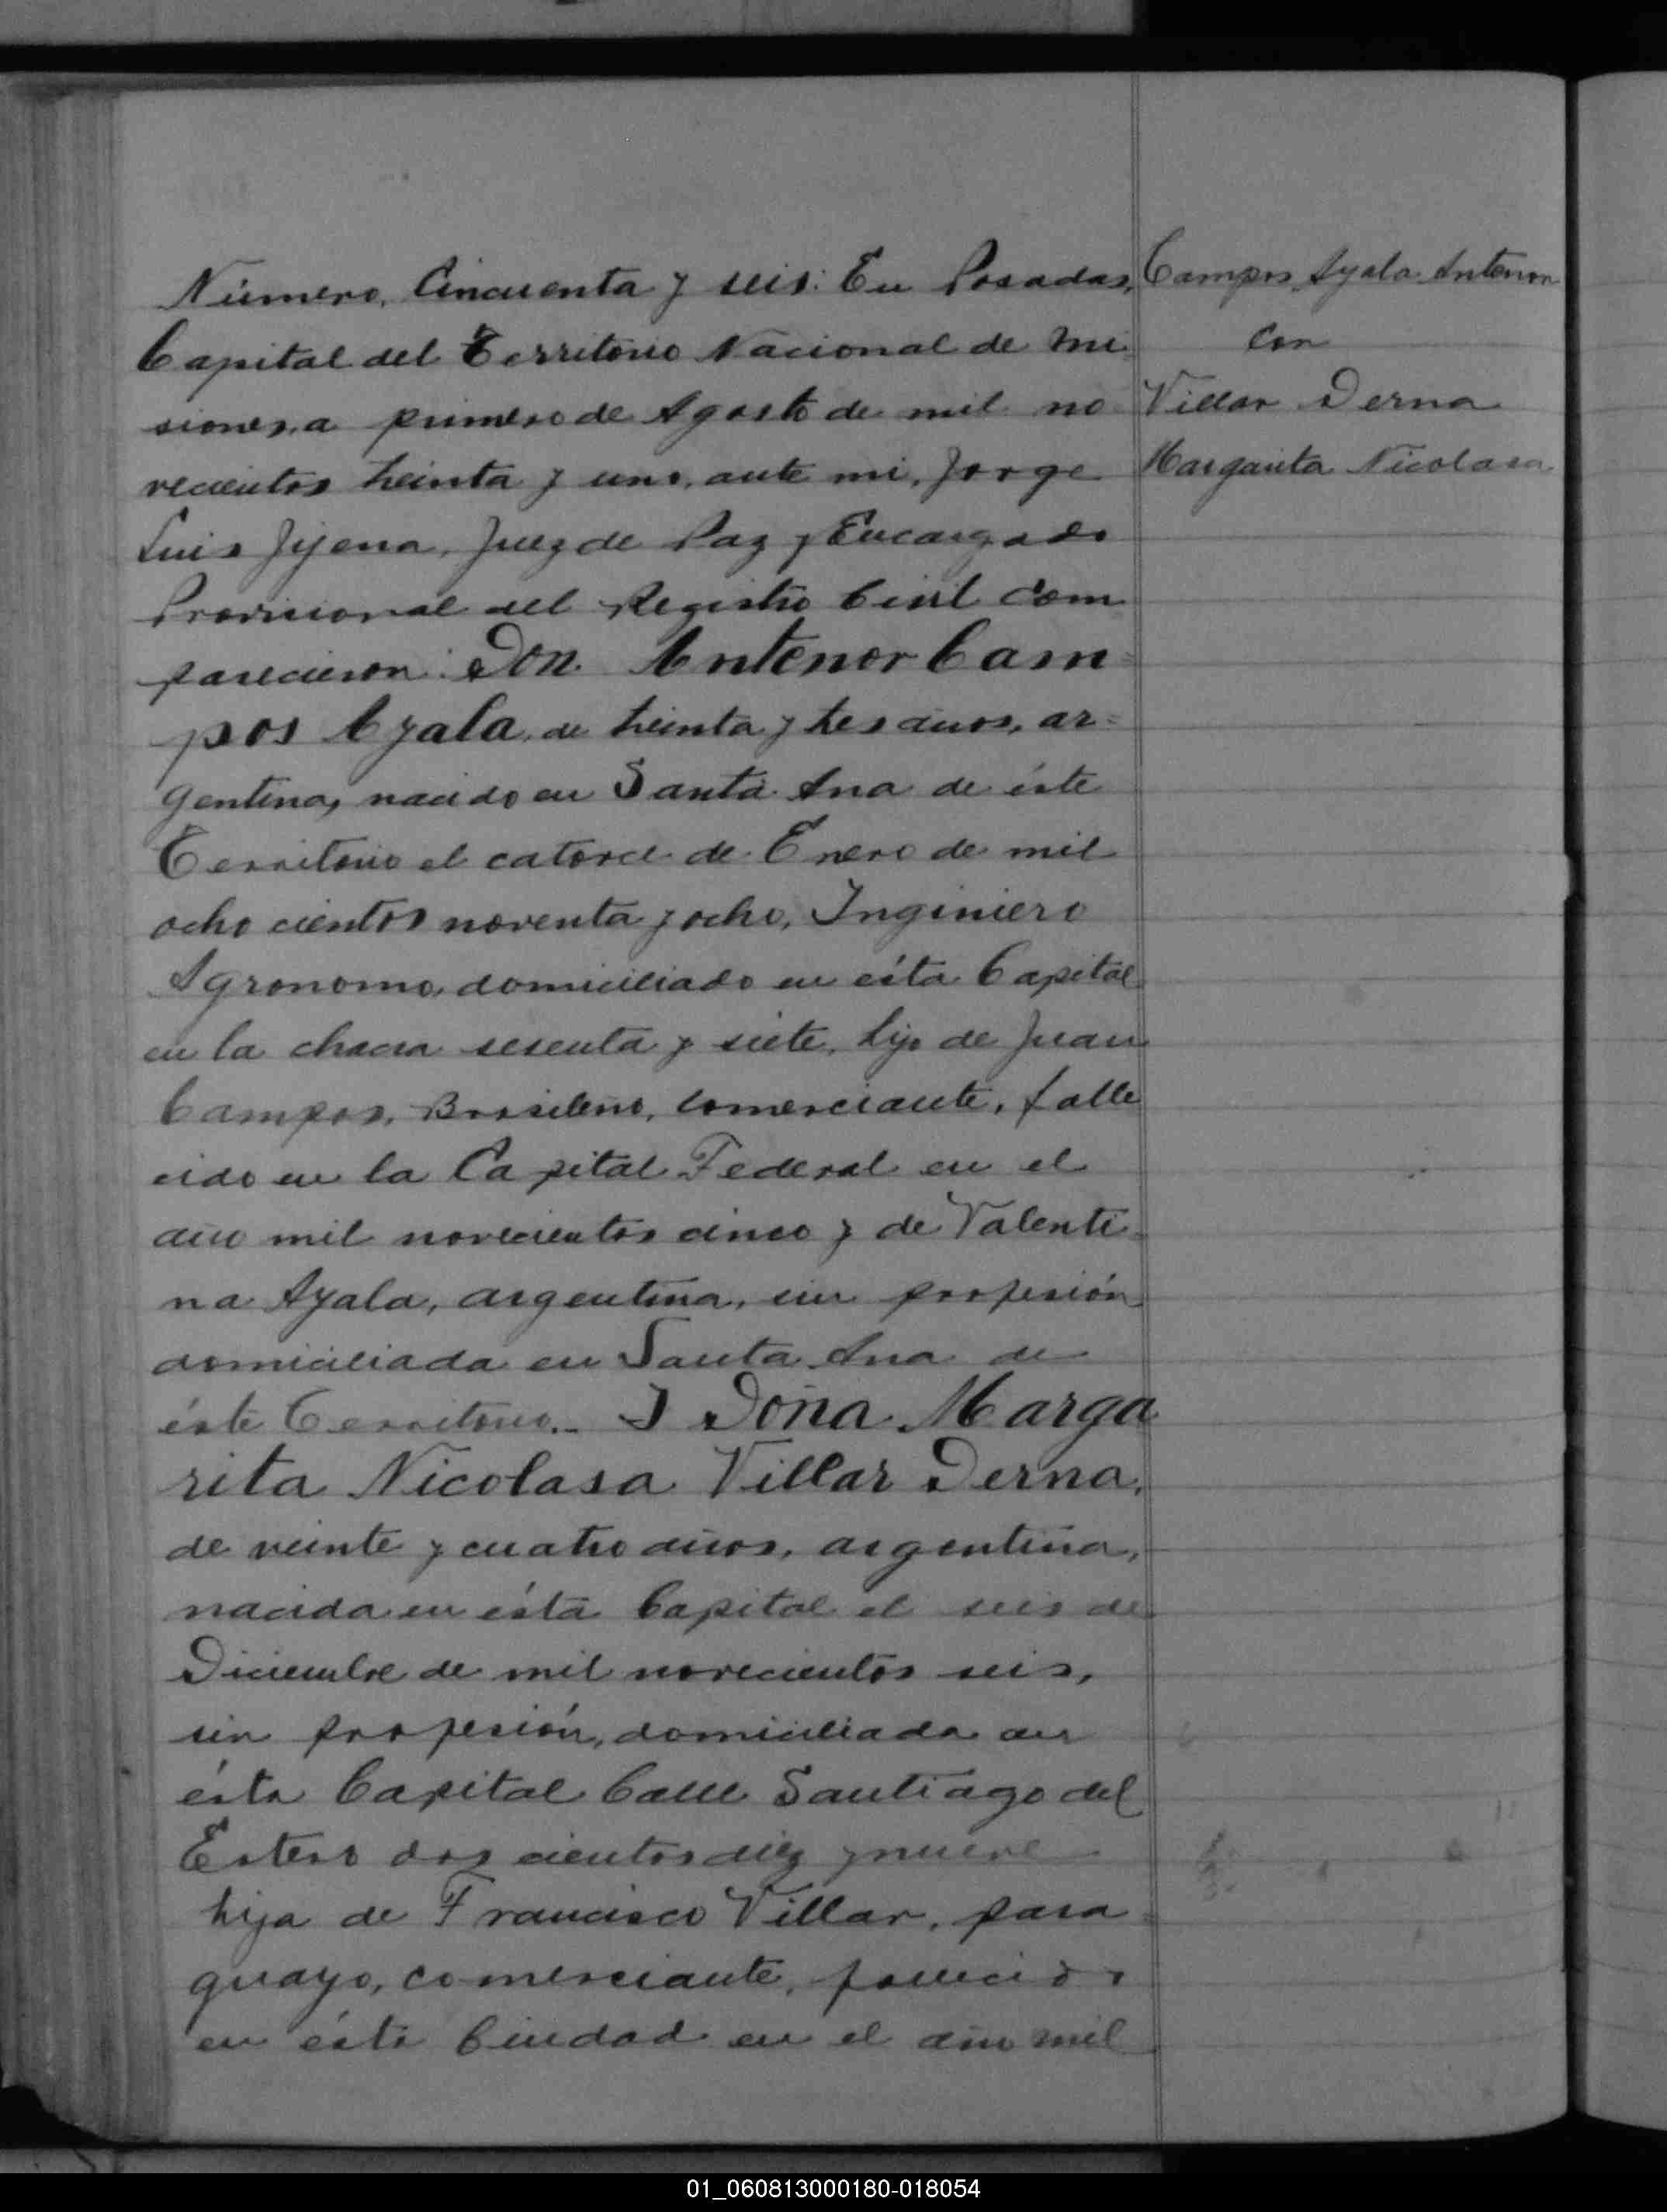 Número, Cincuenta y seis: En Posadas,
Capital del Territorio Nacional de Mi-
siones, a primero de Agosto de mil no-
vecientos treinta y uno, ante mi, Jorge
Luis Jijena, Juez de Paz y Encargado
Provisional del Registro Civil com
parecieron: Don Antenor Cam=
pos Ayala, de treinta y tres años, ar=
gentino, nacido en Santa Ana de éste
Territorio el catorce de Enero de mil
ocho cientos noventa y ocho, Inginiero
Agronomo, domiciliado en ésta Capital
en la chacra sesenta y siete, hijo de Juan
Campos, Brasileno, comerciante, falle
cido en la Capital Federal en el
año mil novecientos cinco y de Valenti=
na Ayala, argentina, sin profesión
domiciliada en Santa Ana de
éste Territorio.- Y Doña Marga
rita Nicolasa Villar Derna,
de veinte y cuatro años, argentina,
nacida en ésta Capital el seis de
Diciembre de mil novecientos seis,
sin profesión, domiciliada en
ésta Capital Calle Santiago del
Estero dos cientos diez y nueve
hija de Francisco Villar, para=
guayo, comerciante, fallecido
en ésta Ciudad en el año mil
Campos Ayala Antenor
Con
Villar Derna
Margarita Nicolasa
01_060813000180-018054